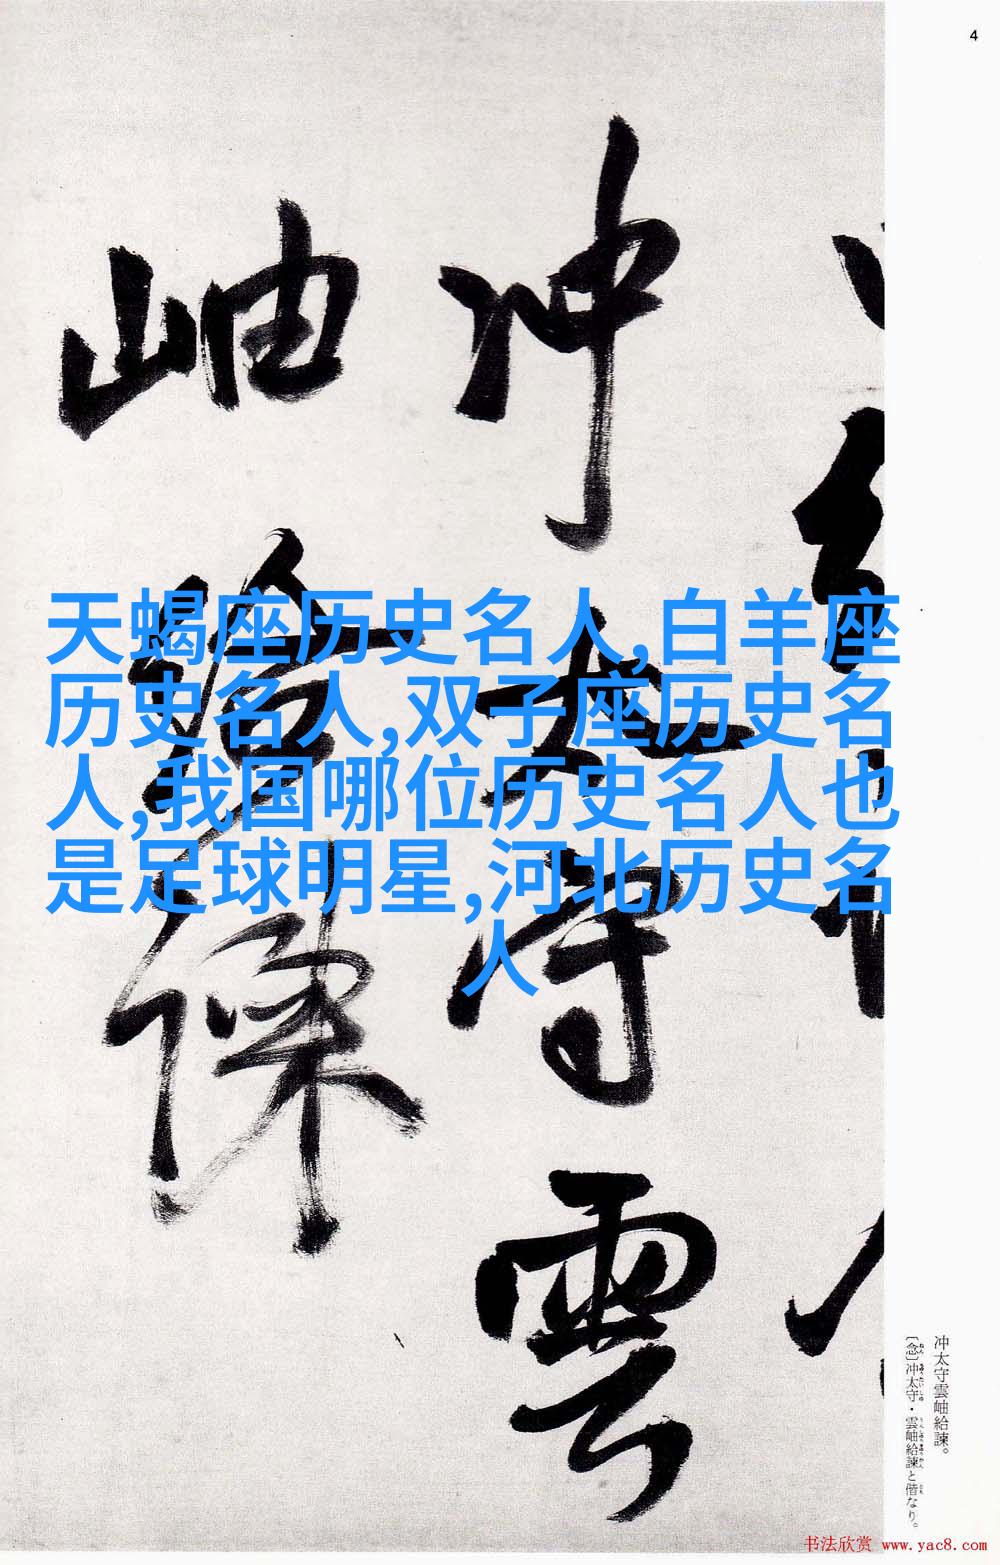 4
天蝎座历史名人,白羊座
历史名人,双子座历史名
人,我国哪位历史名人也
是足球明星,河北历史名
人
冲太守雲
岫給諫
冲太守雲岫給諫。
〔念〕冲太守・雲岫給諫と偕なり。
书法欣赏 www.yac8.com